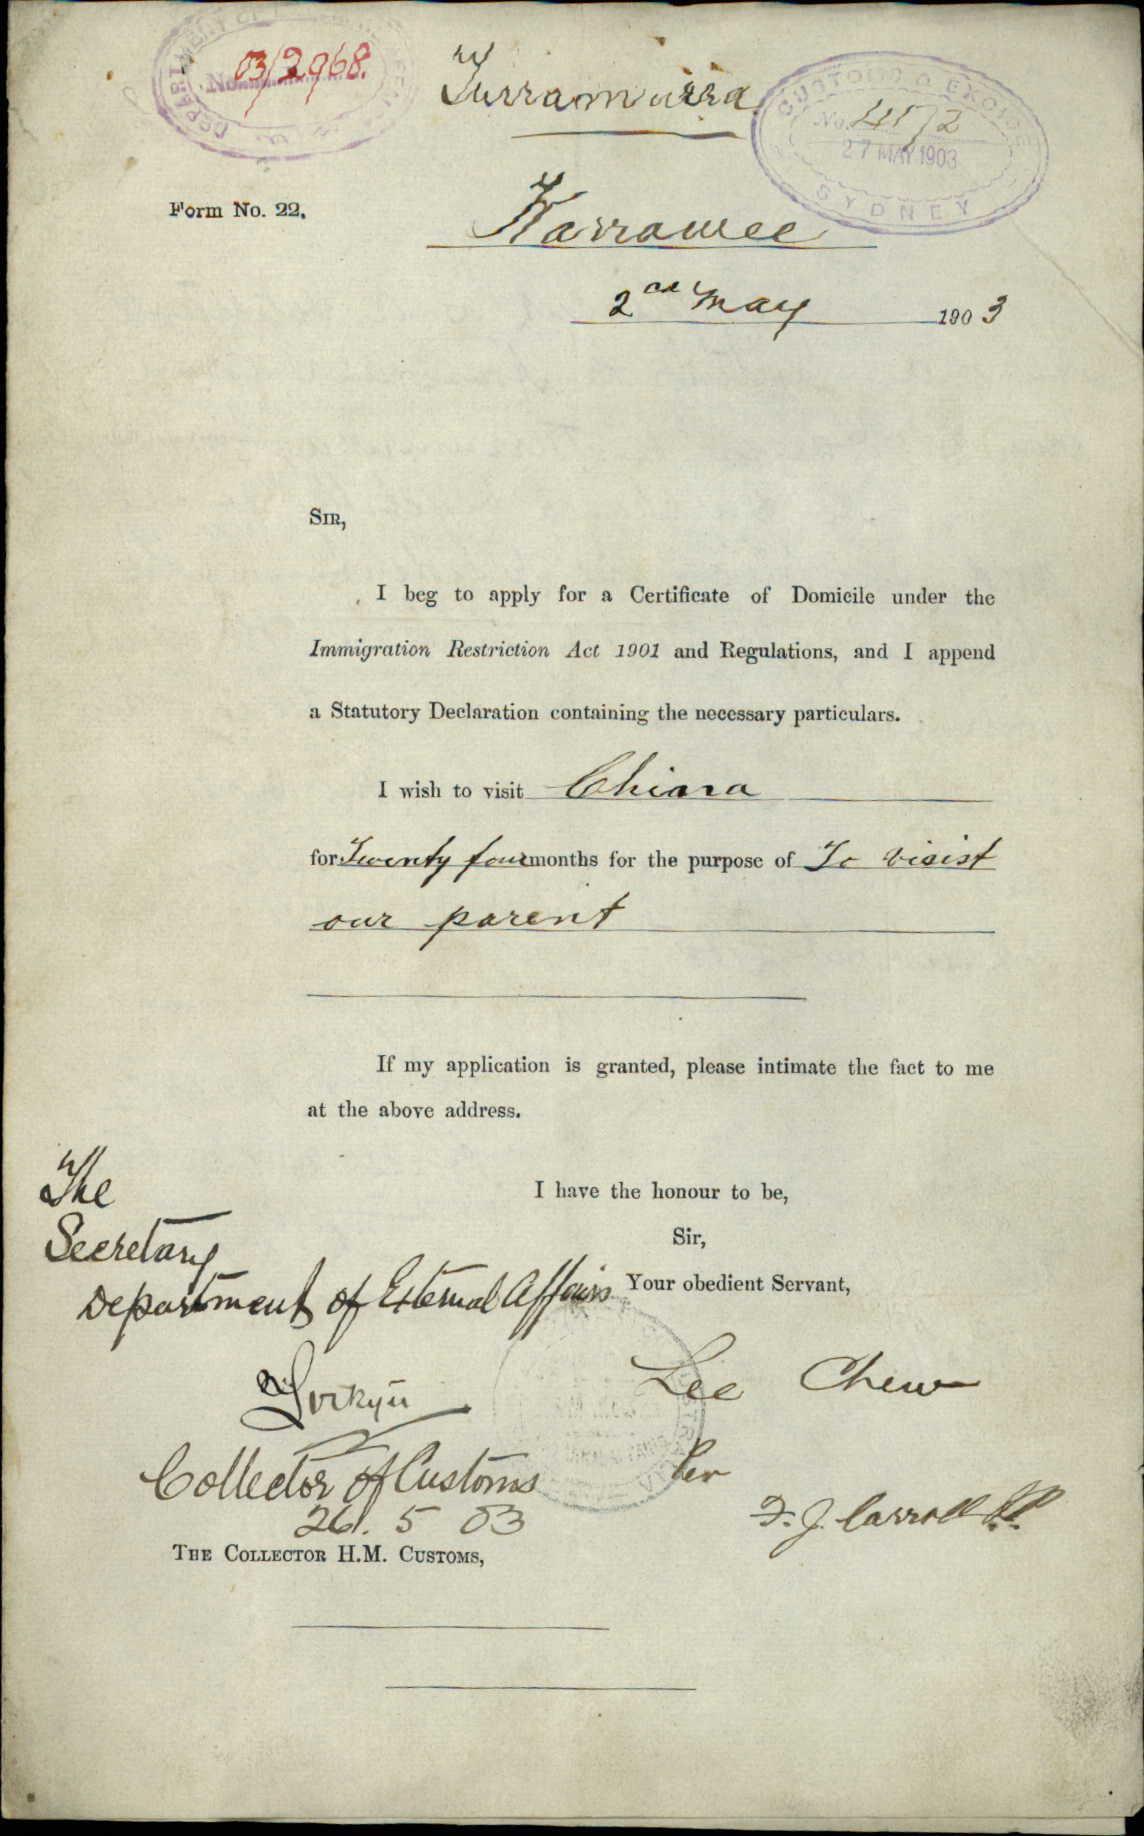 DEPARTMENT OF
No. 03/2968.
Turramurra
CUSTOMS & EXCISE
No.
27 MAY 1903
SYDNEY
Form No. 22.
Warrawee
2nd May 1903
SIR,
I beg to apply for a Certificate of Domicile under the
Immigration Restriction Act 1901 and Regulations, and I append
a Statutory Declaration containing the necessary particulars.
I wish to visit China
for Twenty four months for the purpose of To visist
our parent
If my application is granted, please intimate the fact to me
at the above address.
I have the honour to be,
Sir,
Your obedient Servant,
The
Secretary
Department of External Affairs
Lee Chew
per
F. J. Carroll J.P.
Collector of Customs
26. 5 03
THE COLLECTOR H.M. CUSTOMS,